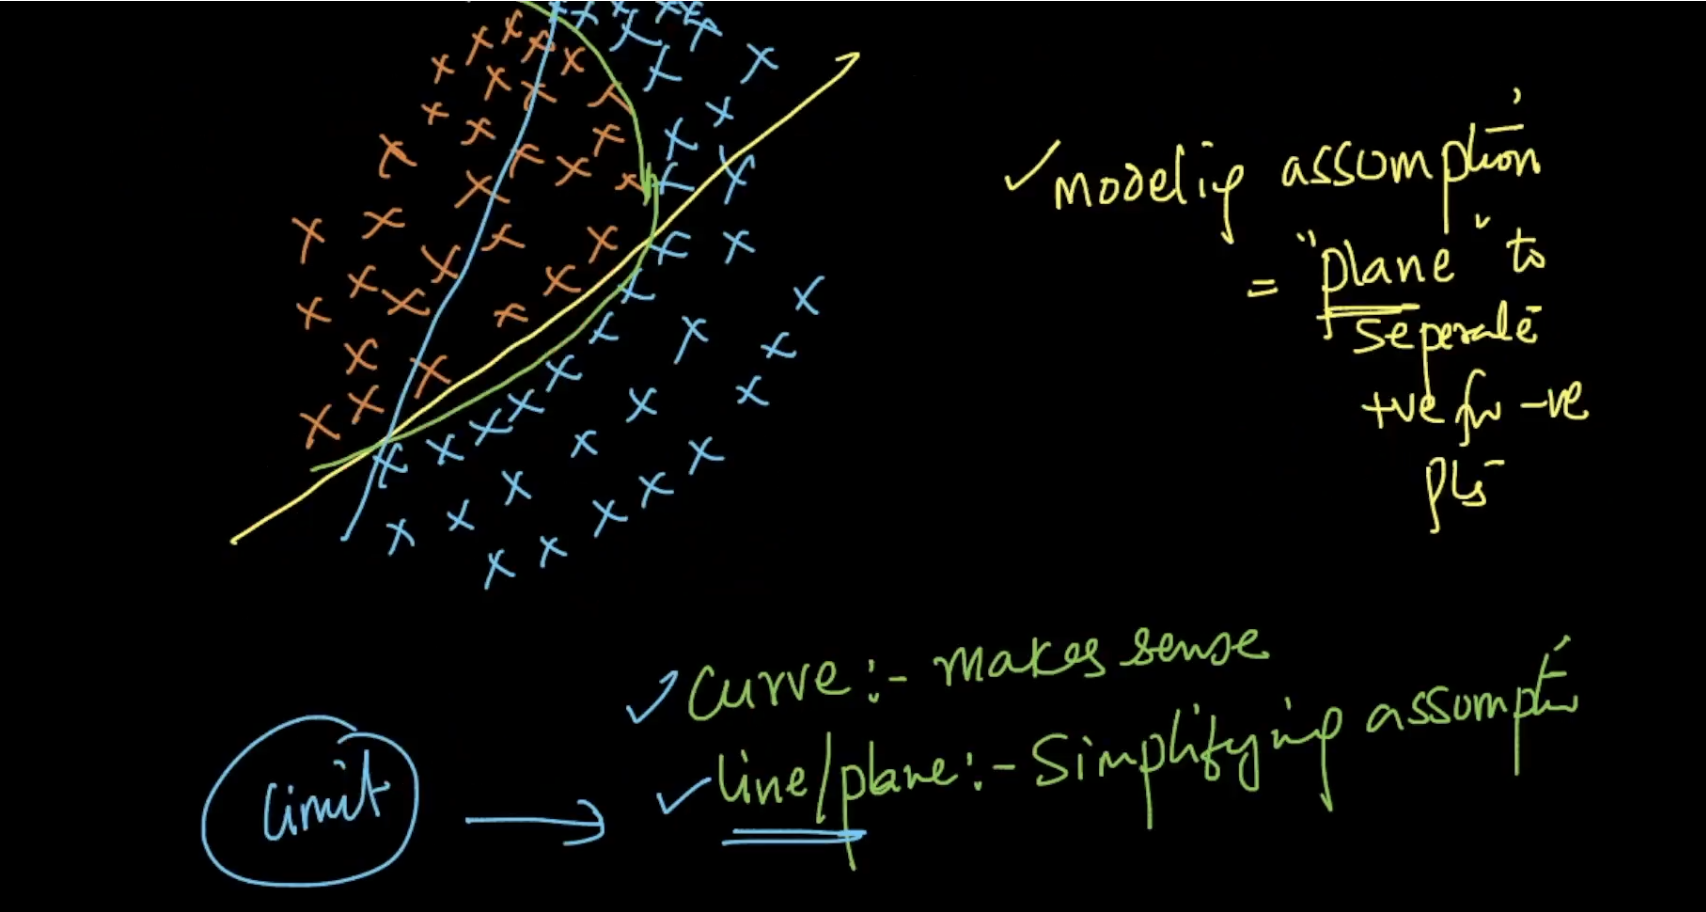 modelig assumption
= "plane" to
seperate
+ve fr -ve
pts
Curve:- makes sense
Limit → line/plane:- Simplifying assumptn